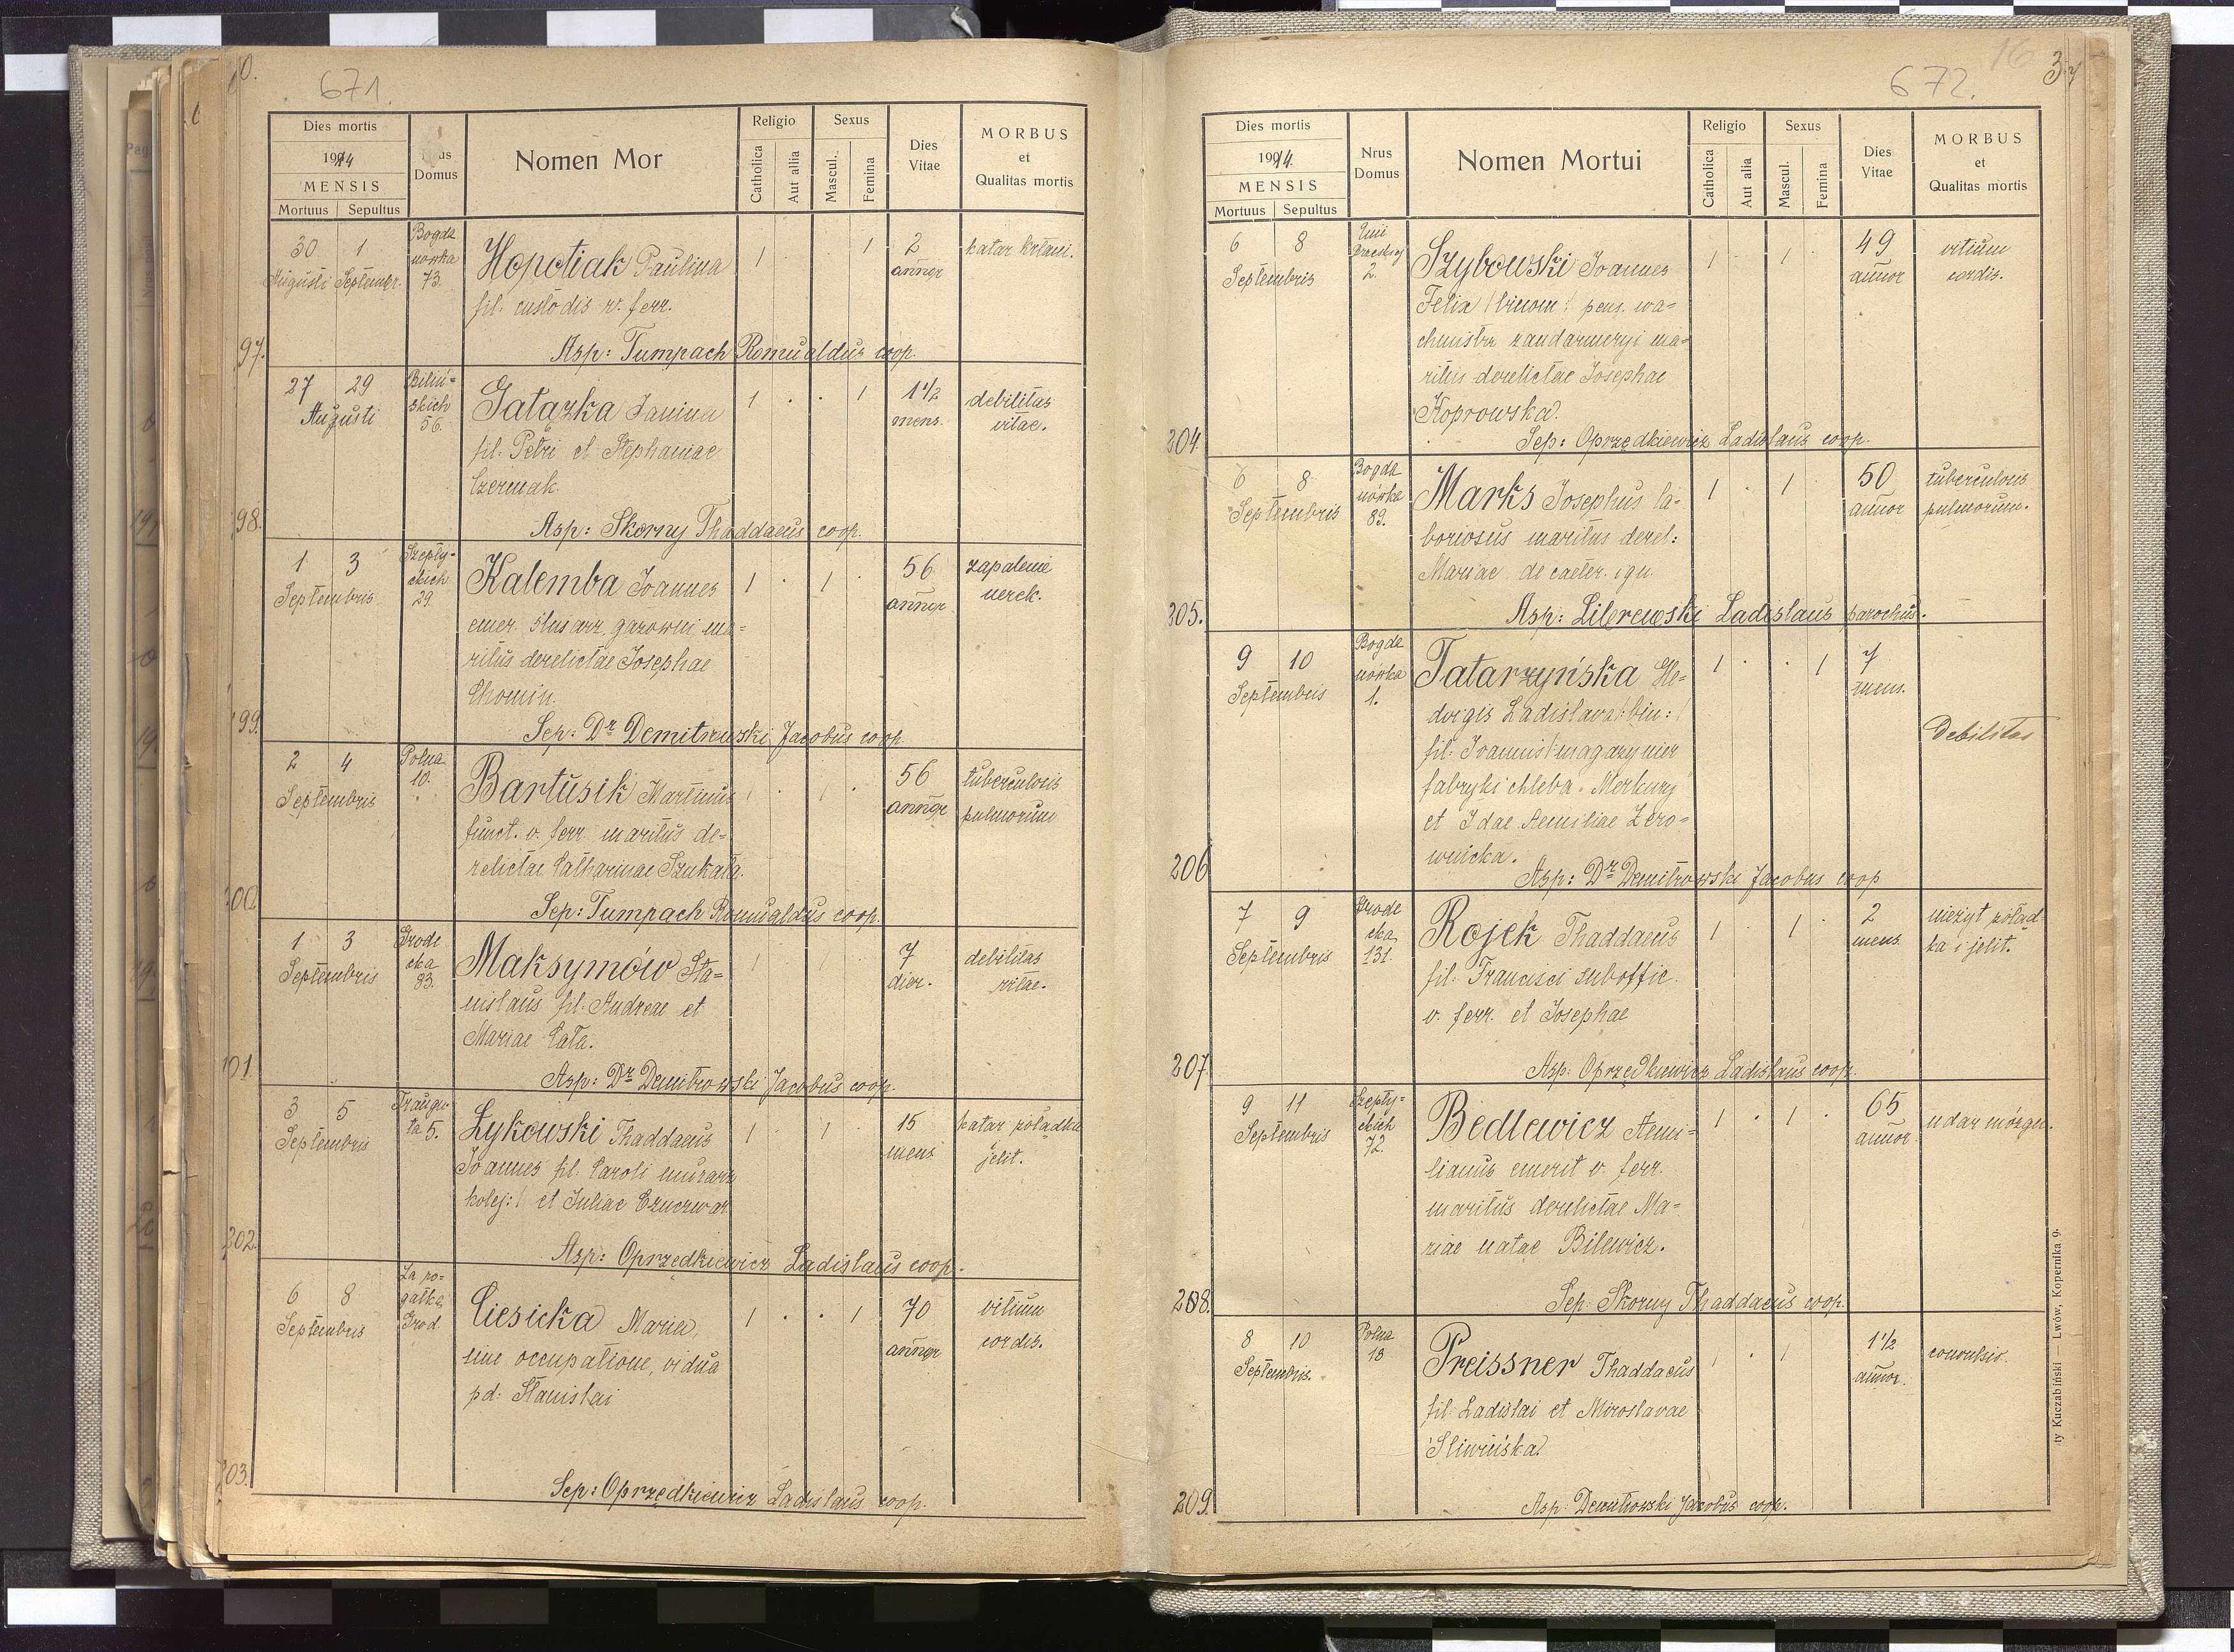 671.
Dies mortis
1914
MENSIS
Mortuus Sepultus
us Domus
Nomen Mor
Religio
Catholica
Aut allia
Sexus
Mascul.
Femina
Dies Vitae
MORBUS
et
Qualitas mortis
97.
30 1
Augusti Septembr.
Bogda
nowka
73.
Hopotiak Paulina
fil. custodis v. ferr.
Asp: Tumpach Romualdus coop.
1 1
2
annor
katar krtani.
98.
27 29
Augusti
Biliń=
skich
56.
Gałązka Janina
fil. Petri et Stephaniae
Czermak.
Asp: Skorny Thaddaeus coop.
1 . . 1
1 1/2
mens.
debilitas
vitae.
199.
1 3
Septembris
Szepty=
ckich
29.
Kalemba Joannes
emer. ślusarz gazowni ma=
ritus derelictae Josephae
Chomin.
Sep: Dr Demitrowski Jacobus coop
1 . 1 .
56
annor
zapalenie
nerek.
200
2 4
Septembris
Polna
10.
Bartusik Martinus
funct. v. ferr. maritus de=
relictae Catharinae Szukała.
Sep: Tumpach Romualdus coop.
1 . 1 .
56
annor
tuberculosis
pulmorum
101
1 3
Septembris
Grode
cka
93.
Maksymów Sta=
nislaus fil. Andreae et
Mariae Cała.
Asp: Dr Demitrowski Jacobus coop.
1 1
7
dier.
debilitas
vitae.
202.
3 5
Septembris
Traugu
ta 5.
Łykowski Thaddaeus
Joannes fil. Caroli murarz
kolej:/ et Juliae Czuczwar
Asp: Oprzędkiewicz Ladislaus coop.
1 . 1 .
15
mens.
katar żołądka
jelit.
203.
6 8
Septembris
Za ro-
gatką
Grod.
Ciesicka Maria,
sine occupatione, vidua
pd: Stanislai
Sep: Oprzędkiewicz Ladislaus coop.
1 . . 1
70
annor
vitium
cordis.
16
672.
37
Dies mortis
1914.
MENSIS
Mortuus Sepultus
Nrus
Domus
Nomen Mortui
Religio
Catholica
Aut alia
Sexus
Mascul.
Femina
Dies
Vitae
MORBUS
et
Qualitas mortis
204
6 8
Septembris
Unii
Brzeskiej
2.
Szybowski Joannes
Felix /:binom:/ pens. wa=
chmistrz żandarmeryi ma=
ritus derelictae Josephae
Koprowska.
Sep: Oprzędkiewicz Ladislaus coop.
1 . 1 .
49
annor
vitium
cordis.
205.
6 8
Septembris
Bogda
nówka
89.
Marks Josephus la=
boriosus maritus derel:
Mariae de caeter. ign.
Asp: Librewski Ladislaus parochus.
1 . 1
50
annor
tuberculosis
pulmorum.
206
9 10
Septembris
Bogda
nówka
1.
Tatarzyńska He=
dvigis Ladislava /:bin:/
fil: Joannis /:magazynier
fabryki chleba "Merkury"
et Idae Aemiliae Zero=
wnicka.
Asp: Dr Demitrowski Jacobus coop
1 . . 1
7
mens.
Debilitas
207.
7 9
Septembris
Grode
cka
131.
Rojek Thaddaeus
fil: Francisci suboffic.
v. ferr. et Josephae
Asp: Oprzędkiewicz Ladislaus coop.
1 . 1 .
2
mens.
nieżyt żołąd=
ka i jelit.
208.
9 11
Septembris
Szepty=
ckich
72.
Bedlewicz Aemi=
lianus emerit v. ferr.
maritus derelictae Ma=
riae natae Bilewicz.
Sep: Skorny Thaddaeus coop.
1 . 1 .
65
annor
udar mózgu.
209.
8 10
Septembris.
Polna
18
Preissner Thaddaeus
fil. Ladislai et Miroslavae
Śliwińska
Asp: Demitrowski Jacobus coop.
1 . 1
1 1/2
annor.
convulsio.
ty Kuczabiński — Lwów, Kopernika 9.